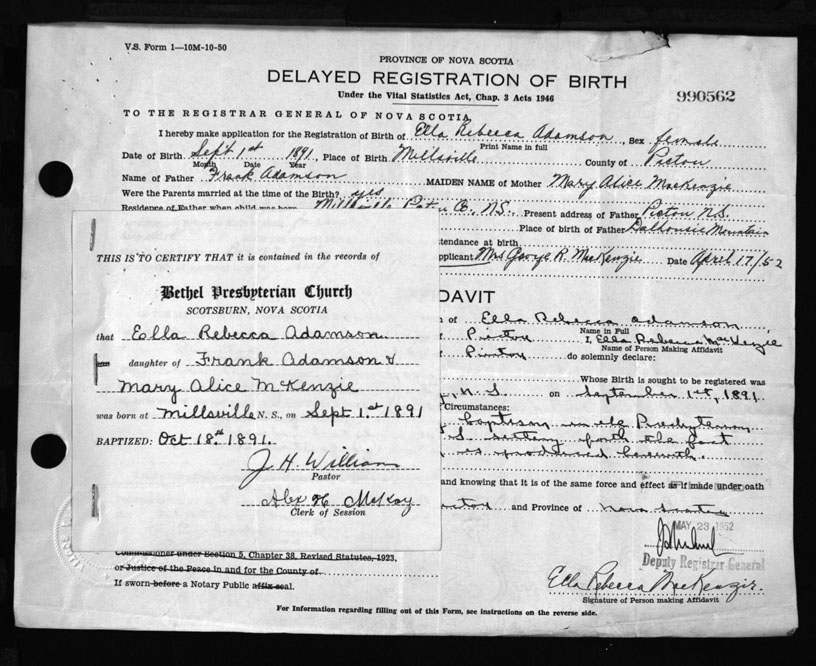 V.S. Form 1—10M-10-50
PROVINCE OF NOVA SCOTIA
DELAYED REGISTRATION OF BIRTH
Under the Vital Statistics Act, Chap. 3 Acts 1946
990562
TO THE REGISTRAR GENERAL OF NOVA SCOTIA,
I hereby make application for the Registration of Birth of Ella Rebecca Adamson, Sex female
Print Name in full
Date of Birth Sept 1st 1891, Place of Birth Millsville County of Pictou
Month Date Year
Name of Father Frank Adamson MAIDEN NAME of Mother Mary Alice MacKenzie
Were the Parents married at the time of the Birth? yes
Residence of Father when child was born Millsville Pictou Co, N.S. Present address of Father Pictou N.S.
Place of birth of Father Dalhousie Mountain
ttendance at birth
pplicant Mrs George R. MacKenzie Date April 17/52
THIS IS TO CERTIFY THAT it is contained in the records of
Bethel Presbyterian Church
SCOTSBURN, NOVA SCOTIA
that Ella Rebecca Adamson
son daughter of Frank Adamson &
Mary Alice McKenzie
was born at Millsville N. S., on Sept 1.st 1891
BAPTIZED: Oct 18.th 1891.
J. H. William
Pastor
Alex H McKay
Clerk of Session
DAVIT
n of Ella Rebecca Adamson,
Name in Full
Pictou I, Ella Rebecca MacKenzie
Name of Person Making Affidavit
Pictou do solemnly declare:
Whose Birth is sought to be registered was
, N.S. on September 1st, 1891.
Circumstances:
baptism in the Presbyterian
S. setting forth the fact
is produced herewith.
and knowing that it is of the same force and effect as if made under oath
Pictou and Province of Nova Scotia
MAY 23 1952
Deputy Registrar General
Commissioner under Section 5, Chapter 38, Revised Statutes, 1923,
or Justice of the Peace in and for the County of
If sworn before a Notary Public affix seal.
Ella Rebecca MacKenzie.
Signature of Person making Affidavit
For Information regarding filling out of this Form, see instructions on the reverse side.